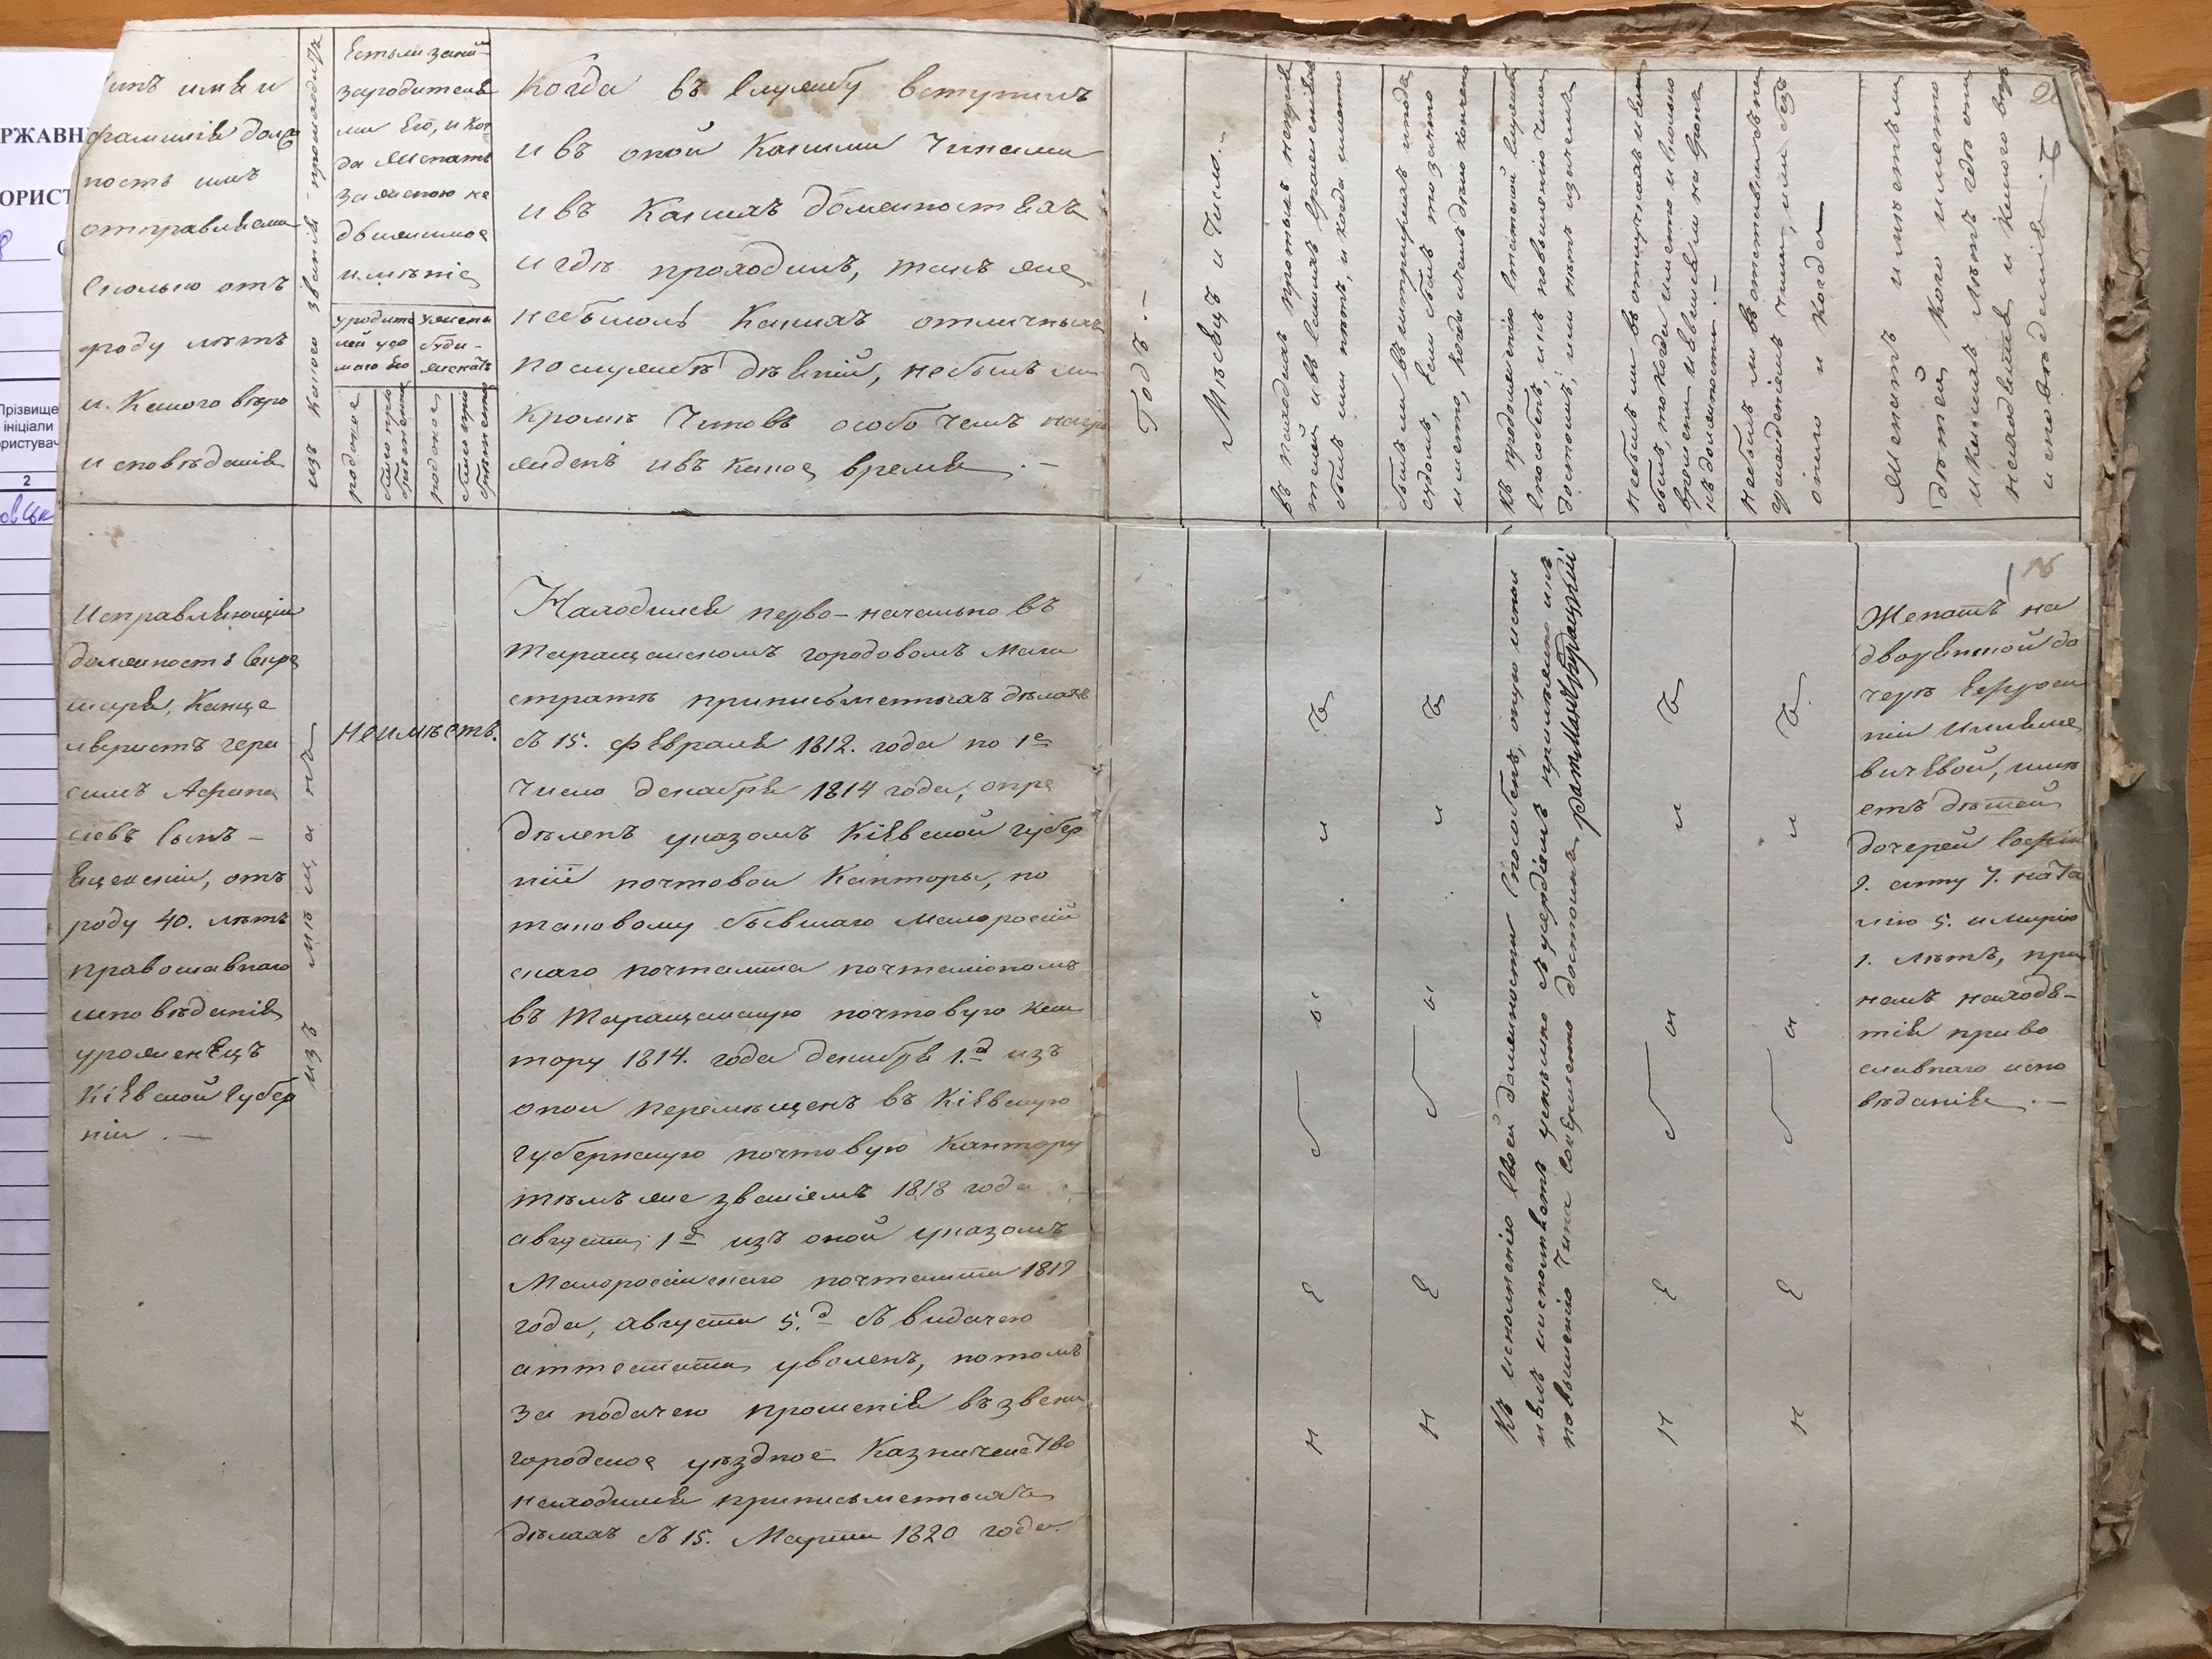 РЖАВН
ОРИСТ
Прізвище
ініціали
ристувач
2
чинъ имя и
фамилія долж
ность имъ
отправляема
сколько отъ
роду лѣтъ
и какого вѣро
исповѣданія
изъ какого званія происходитъ
Естьли за нимъ
за родителя
ми его, и ког
да женатъ
за женою не
движимое
имѣніе
у родите
лей и у са
маго его
у жены
буде
женатъ
родовое
благопріо
брѣтенное
родовое
благопріо
брѣтенное
Когда въ службу вступилъ
и въ оной какими чинами
и въ какихъ должностяхъ
и гдѣ проходилъ, такъ же
небыло ль какихъ отличныхъ
по службѣ дѣяній, не былъ ли
кромѣ чиновъ особо чемъ награ
жденъ и въ какое время .—
Годъ .—
Мѣсяцъ и Число.—
въ походахъ противъ непрія
теля и въ самыхъ сраженіяхъ
былъ или нѣтъ, и когда имянно
былъ ли въ штрафахъ и подъ
судомъ, если былъ то за что
имянно, когда и чемъ дѣло кончено
Къ продолженію статской службы
способенъ, и къ повышенію чина
достоинъ; или нѣтъ и зачемъ
небылъ ли въ отпускахъ и если
былъ, то когда имянно и сколько
времени и явился ли на срокъ
къ должности .—
небылъ ли въ отставкѣ съ на
гражденіемъ чина, или безъ
онаго и когда —
Женатъ и имѣетъ ли
дѣтей кого имянно
и какихъ лѣтъ гдѣ они
находятся и какого вѣро
исповѣданія .—
16
Исправляющій
должность секре
таря, Канце
ляристъ Гера
симъ Афана
сіевъ сынъ —
Ященскій, отъ
роду 40. лѣтъ
православнаго
исповѣданія
уроженецъ
Кіевской Губер
ніи .—
изъ мѣщанъ
неимѣетъ.
Находился перво-начально въ
Таращанскомъ городовомъ маги
стратѣ при письменныхъ дѣлахъ
съ 15. февраля 1812. года по 1е
число декабря 1814 года, опре
дѣленъ указомъ Кіевской губер
ніи почтовой Канторы, по
таковому бывшаго Малоросій
скаго почтамта почталіономъ
въ Таращанскую почтовую кан
тору 1814. года декабря 1.д изъ
оной перемѣщенъ въ Кіевскую
губернскую почтовую Кантору
тѣмъ же званіемъ 1818 года
августа, 1д изъ оной указомъ
Малоросійскаго почтамта 1819
года, августа 5.д съ видачею
аттестата уволенъ, потомъ
за подачею прошенія въ звени
городское уѣздное Казначейство
находился при письменныхъ
дѣлахъ съ 15. Марта 1820 года.
не былъ
не былъ
Къ исполненію своей должности способенъ, оную испол
повышенію чина совершенно достоинъ
не былъ
не былъ
Женатъ на
дворянской до
черѣ Ефроси
ніи
вичевой, имѣ
етъ дѣтей
дочерей Софію
9. Анну 7. Ната
лію 5. и Марію
1. лѣтъ, при
немъ находя-
тся право
славнаго испо
вѣданія .—